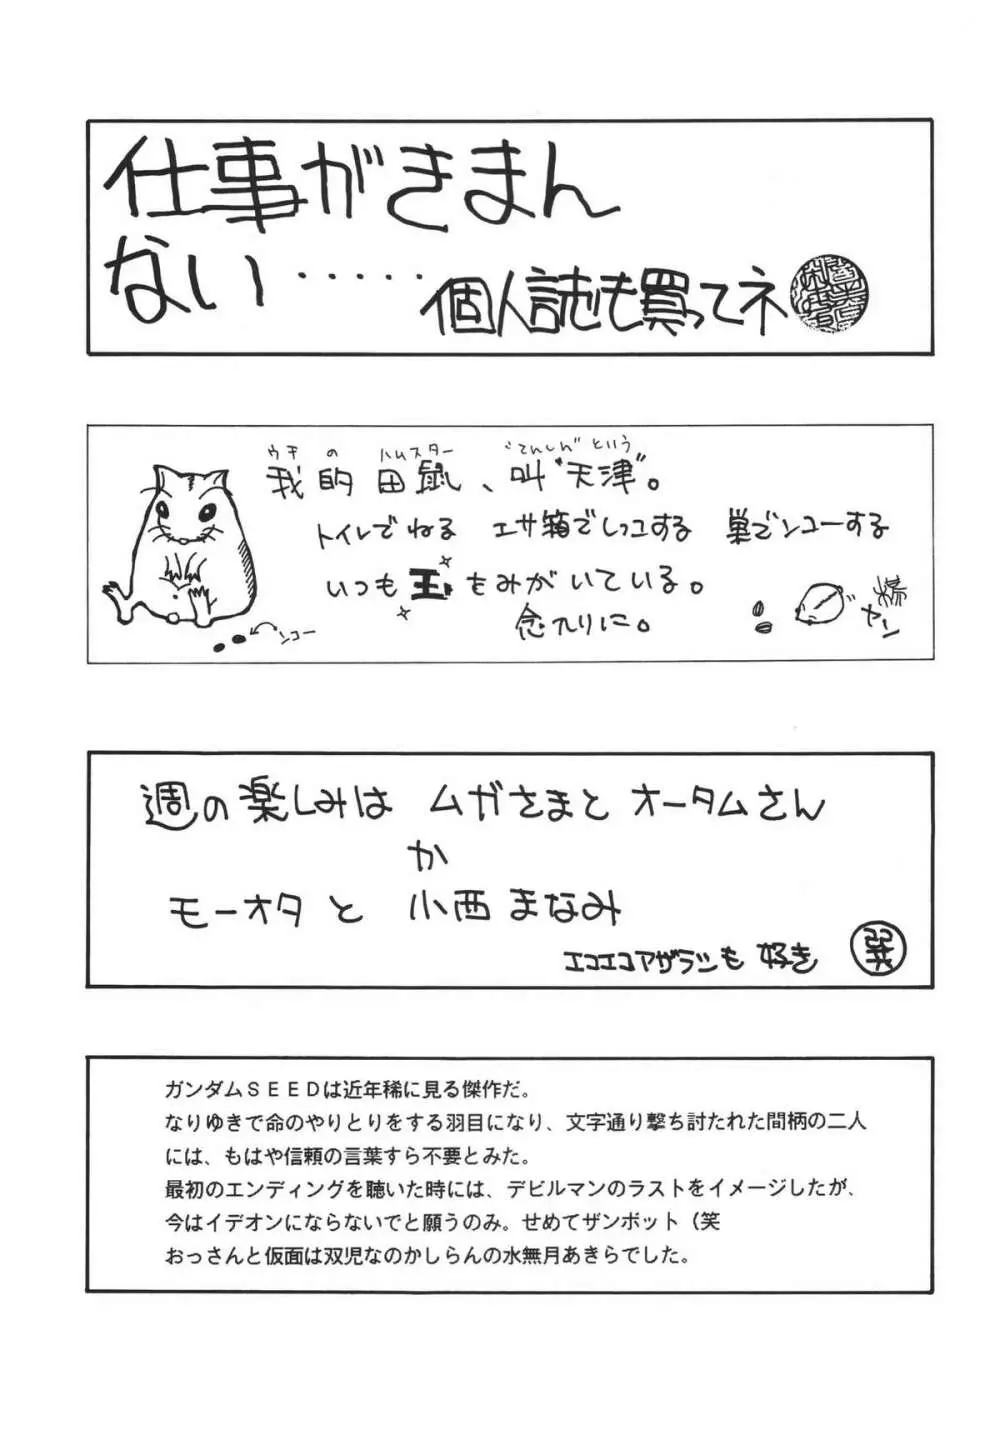 仕事がきまん
ない・・・・・
個人誌も買ってネ
ウチ の ハムスター "てんしん"という
我的田鼠、叫"天津"。
トイレでねる エサ箱でしっコする 巣でンコーする
いつも玉をみがいている。
念入りに。
ンコー
ヤーン
週の楽しみは ムガさまと オータムさん
か
モーオタ と 小西まなみ
エコエコアザラシも 好き
巽
ガンダムSEEDは近年稀に見る傑作だ。
なりゆきで命のやりとりをする羽目になり、文字通り撃ち討たれた間柄の二人
には、もはや信頼の言葉すら不要とみた。
最初のエンディングを聴いた時には、デビルマンのラストをイメージしたが、
今はイデオンにならないでと願うのみ。せめてザンボット(笑
おっさんと仮面は双児なのかしらんの水無月あきらでした。